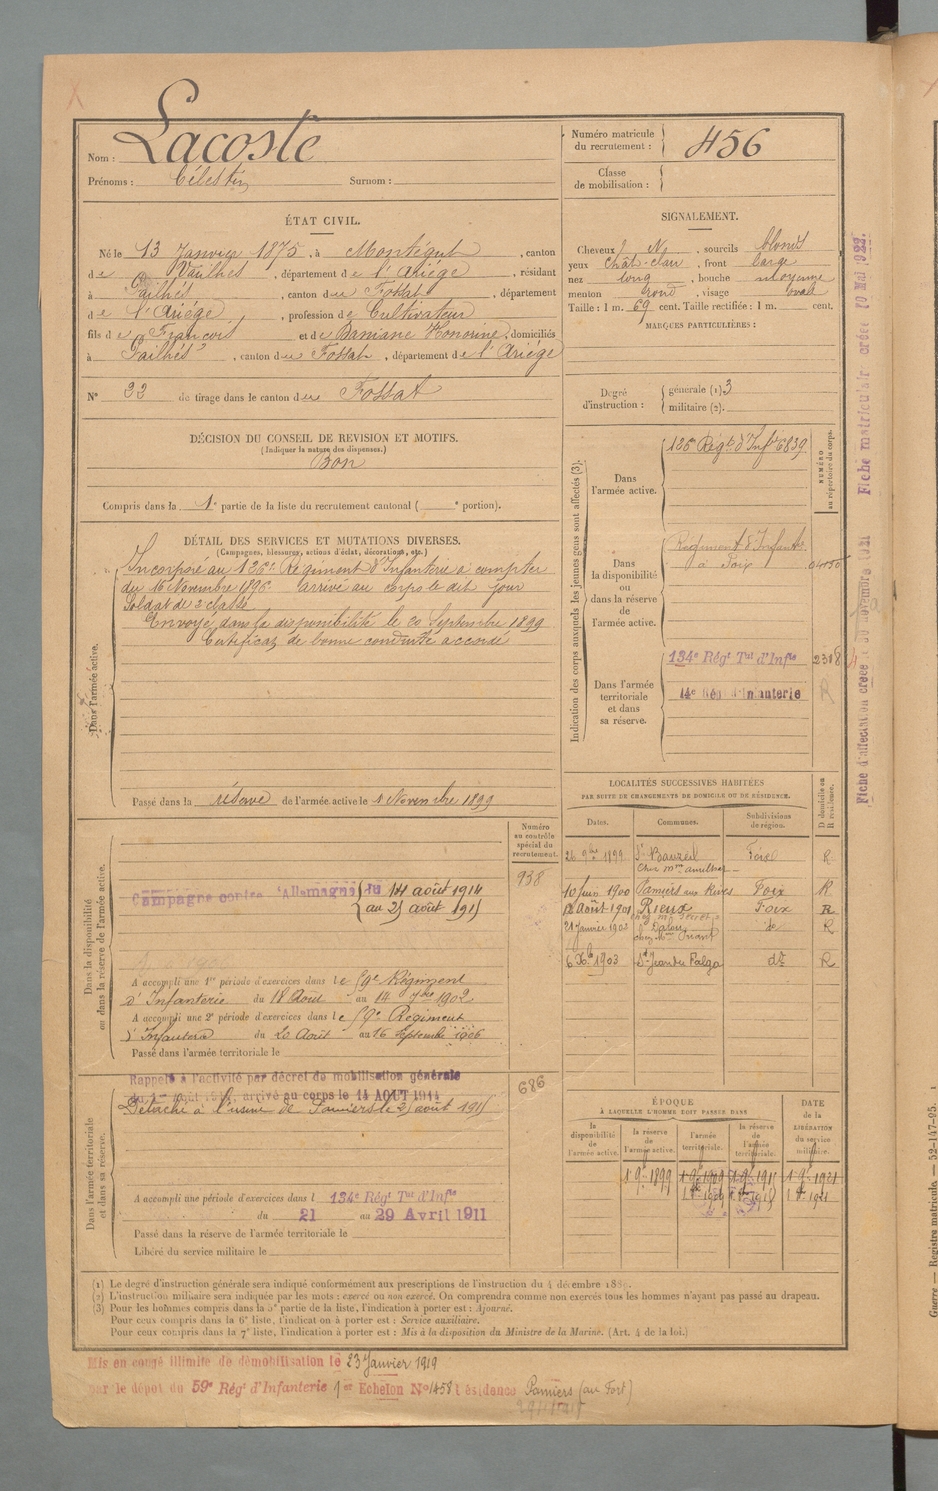 Nom : Lacoste
Prénoms : Célestin Surnom :
Numéro matricule du recrutement : 456
Classe de mobilisation :
ÉTAT CIVIL.
Né le 13 Janvier 1875, à Montégut, canton
de Varilhes, département de l'Ariège, résidant
à Pailhès, canton du Fossat, département
de l'Ariège, profession de Cultivateur
fils de François et de Baniane Honorine, domiciliés
à Pailhès, canton du Fossat, département de l'Ariège
N° 22 de tirage dans le canton du Fossat
DÉCISION DU CONSEIL DE REVISION ET MOTIFS.
(Indiquer la nature des dispenses.)
Bon
Compris dans la 1e partie de la liste du recrutement cantonal ( e portion).
SIGNALEMENT.
Cheveux N, sourcils blonds
yeux Chât-clair, front large
nez long, bouche moyenne
menton rond, visage ovale
Taille : 1 m. 69 cent. Taille rectifiée : 1 m. cent.
MARQUES PARTICULIÈRES :
Degré d'instruction : générale (1) 3
militaire (2).
DÉTAIL DES SERVICES ET MUTATIONS DIVERSES.
(Campagnes, blessures, actions d'éclat, décorations, etc.)
Dans l'armée active.
Incorporé au 126e Régiment d'Infanterie à compter
du 16 Novembre 1896 arrivé au corps le dit jour
Soldat de 2e classe
Envoyé dans la disponibilité le 20 Septembre 1899
Certificat de bonne conduite accordé
Passé dans la réserve de l'armée active le 1 Novembre 1899
Indication des corps auxquels les jeunes gens sont affectés (3).
NUMÉRO au répertoire du corps.
Dans l'armée active.
126e Régt d'Infie 6839
Dans la disponibilité ou dans la réserve de l'armée active.
Régiment d'Infanterie
à Foix
Dans l'armée territoriale et dans sa réserve.
134e Régt Tal d'Infie
14e Rég d'Infanterie
R
LOCALITÉS SUCCESSIVES HABITÉES
PAR SUITE DE CHANGEMENTS DE DOMICILE OU DE RÉSIDENCE.
Dates. Communes. Subdivisions de région. D domicile ou R résidence.
26 9bre 1899 St Bauzeil Foix R
10 Juin 1900 Pamiers aux Rives Foix R
12 Août 1901 Rieux Foix R
21 Janvier 1902 Dalou de R
6 Xbre 1903 St Jean du Falga do R
Dans la disponibilité ou dans la réserve de l'armée active.
Numéro au contrôle spécial du recrutement.
938
Campagne contre l'Allemagne du 14 août 1914
au 25 août 1915
A accompli une 1re période d'exercices dans le 59e Régiment
d'Infanterie du 18 Août au 14 7bre 1902
A accompli une 2e période d'exercices dans le 59e Régiment
d'Infanterie du 20 Août au 16 Septembre 1906
Passé dans l'armée territoriale le
Dans l'armée territoriale et dans sa réserve.
686
Rappelé à l'activité par décret de mobilisation générale
du 1er août 1914, arrivé au corps le 14 AOUT 1914
Détaché à l'usine de Pamiers le 25 août 1915
A accompli une période d'exercices dans l 134e Régt Tal d'Infie
du 21 au 29 Avril 1911
Passé dans la réserve de l'armée territoriale le
Libéré du service militaire le
ÉPOQUE
À LAQUELLE L'HOMME DOIT PASSER DANS
la disponibilité de l'armée active. la réserve de l'armée active. l'armée territoriale. la réserve de l'armée territoriale. DATE de la LIBÉRATION du service militaire.
1 9bre 1899 1 9bre 1909 1 9bre 1915 1 9bre 1921
(1) Le degré d'instruction générale sera indiqué conformément aux prescriptions de l'instruction du 4 décembre 1889.
(2) L'instruction militaire sera indiquée par les mots : exercé ou non exercé. On comprendra comme non exercés tous les hommes n'ayant pas passé au drapeau.
(3) Pour les hommes compris dans la 5e partie de la liste, l'indication à porter est : Ajourné.
Pour ceux compris dans la 6e liste, l'indication à porter est : Service auxiliaire.
Pour ceux compris dans la 7e liste, l'indication à porter est : Mis à la disposition du Ministre de la Marine. (Art. 4 de la loi.)
Mis en congé illimité de démobilisation le 23 Janvier 1919
par le dépôt du 59e Régt d'Infanterie 1er Echelon No 1458 résidence Pamiers (au Fort)
Fiche d'affectation créée 20 novembre 1921 Fiche matriculaire créée 10 Mai 1922.
Guerre — Registre matricule. — 52-147-95.